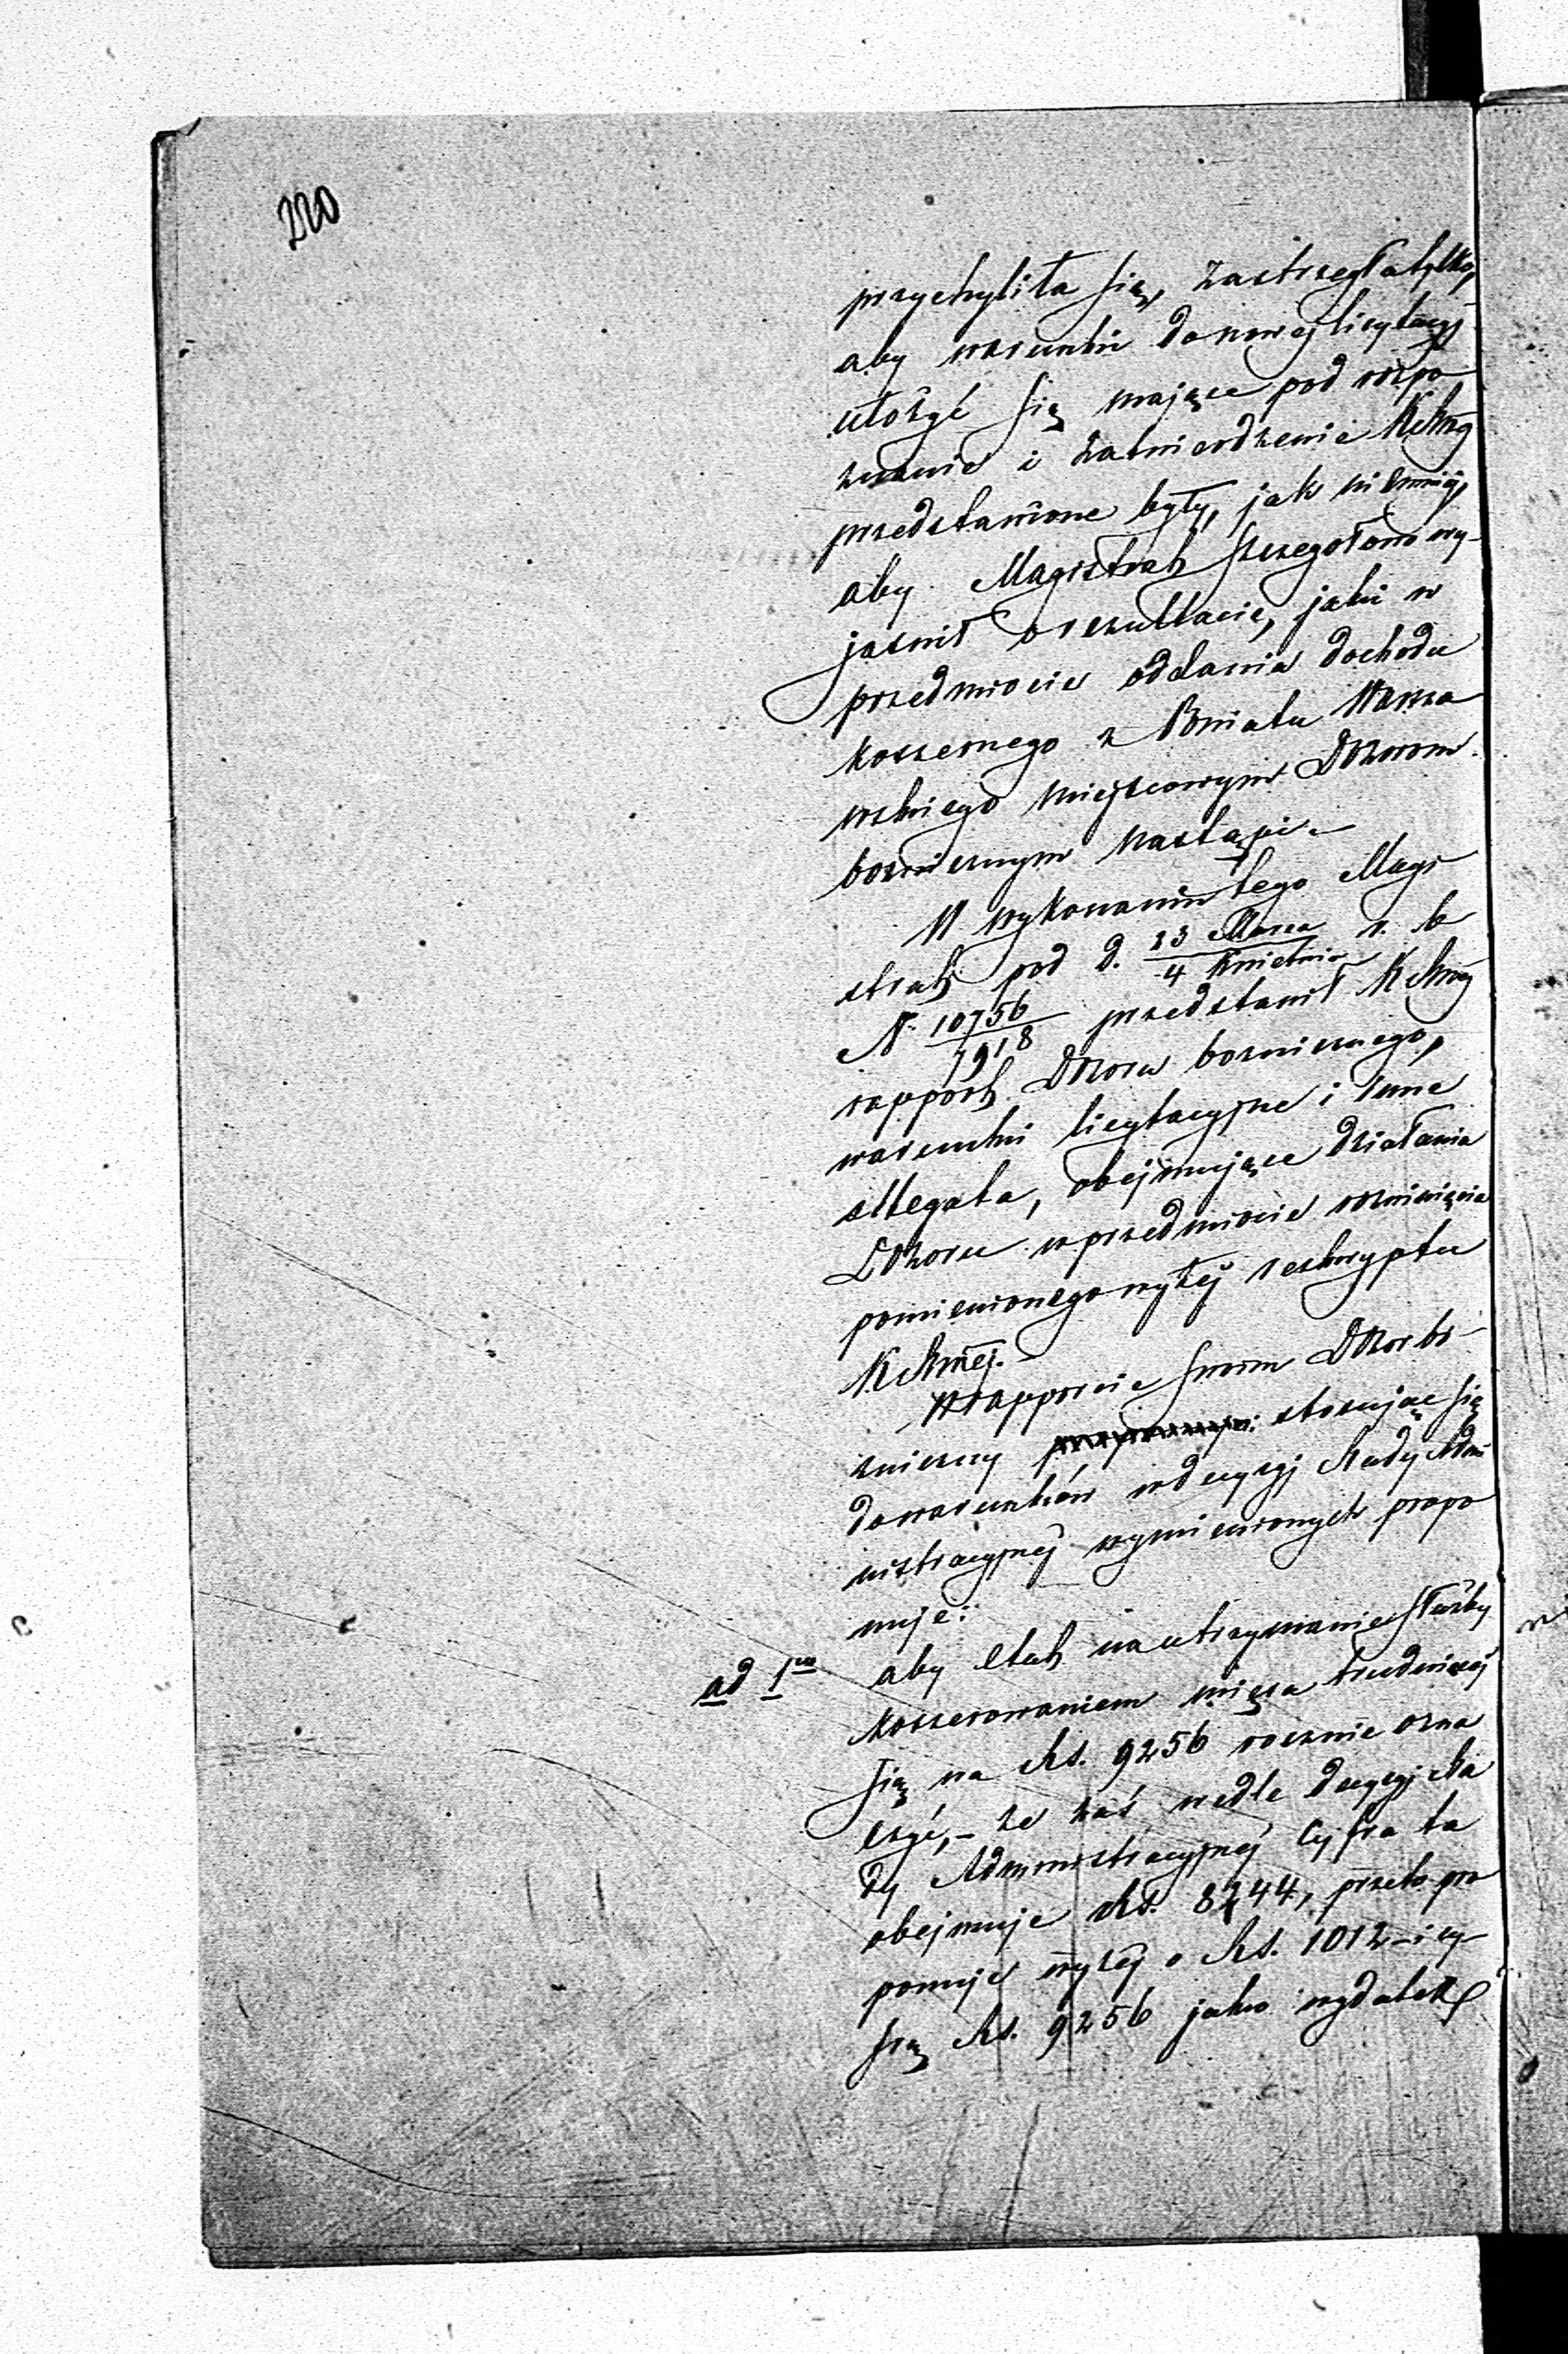 220
przychyliła się, zastrzegła tylko,
aby warunki do nowej licytacyj
ułożyć się mające pod rozpo
znanie i zatwierdzenie KRząd
przedstawione były, jak niemniéj,
aby Magistrat szczegołowo wy-
jasnił o rezultacie, jaki w
przedmiocie oddania dochodu
koszernego z Powiatu Warsza
wskiego miejscowym Dozorom
bożniczym nastąpi.–
W wykonaniu tego Magi
strat pod d. 23 Marca / 4 Kwietnia r. b
N. 10756 / 7918 przedstawił KRząd
rapport Dozoru bożniczego,
warunki licytacyjne i inne
allegata, obejmujące działania
Dozoru w przedmiocie rozwinięcia
pomienionego wyżéj reskryptu
KRząéj.
W rapporcie swoim Dozor bo-
żniczny stosując się
do warunków w decyzyj Rady Admi
nistracyjnéj wymienionych propo
nuje:
ad 1mo aby etat na utrzymanie służby
koszerowaniem mięsa trudniącéj
się na Rs. 9256 rocznie ozna
czyć,– że zaś wedle decyzyj Ra
dy Administracyjnéj cyfra ta
obejmuje Rs. 8244, przeto pro
ponuje wyżéj o Rs. 1012 – i cy-
frę Rs. 9256 jako wydatek